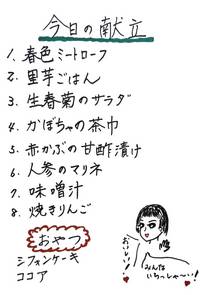 今日の献立
1. 春色ミートローフ
2. 里芋ごはん
3. 生春菊のサラダ
4. かぼちゃの茶巾
5. 赤かぶの甘酢漬け
6. 人参のマリネ
7. 味噌汁
8. 焼きりんご
おやつ
シフォンケーキ
ココア
おいしい!
みんな
いらっしゃ〜い!